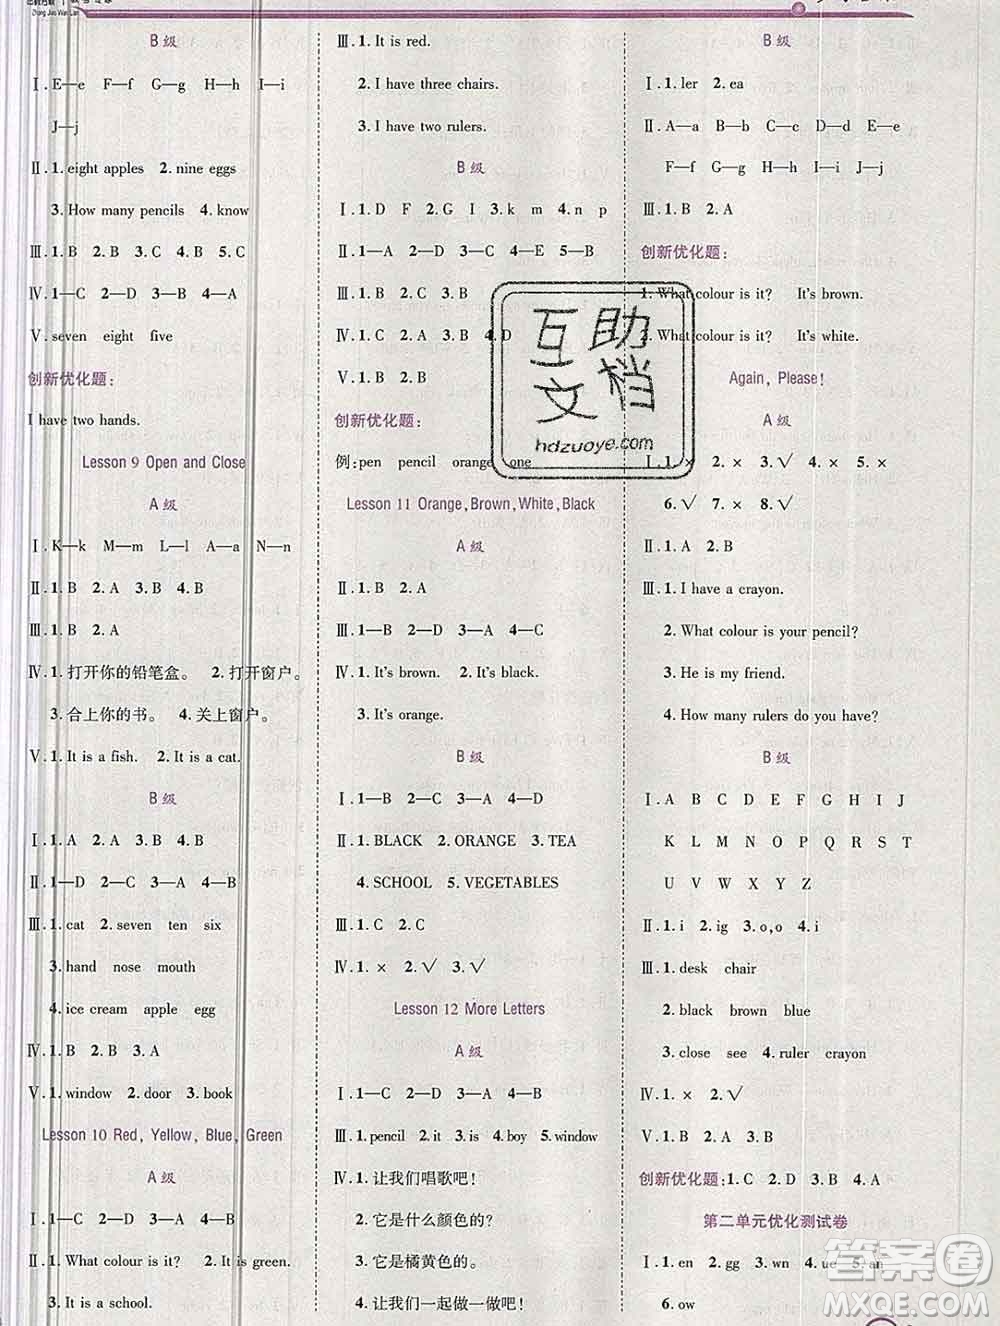 Zhong Jiao Wan Lian
B 级
Ⅰ. E—e F—f G—g H—h I—i
J—j
Ⅱ. 1. eight apples 2. nine eggs
3. How many pencils 4. know
Ⅲ. 1. B 2. B 3. A 4. B 5. C
Ⅳ. 1—C 2—D 3—B 4—A
Ⅴ. seven eight five
创新优化题：
I have two hands.
Lesson 9 Open and Close
A 级
Ⅰ. K—k M—m L—l A—a N—n
Ⅱ. 1. B 2. A 3. B 4. B
Ⅲ. 1. B 2. A
Ⅳ. 1. 打开你的铅笔盒。 2. 打开窗户。
3. 合上你的书。 4. 关上窗户。
Ⅴ. 1. It is a fish. 2. It is a cat.
B 级
Ⅰ. 1. A 2. A 3. B 4. B
Ⅱ. 1—D 2—C 3—A 4—B
Ⅲ. 1. cat 2. seven ten six
3. hand nose mouth
4. ice cream apple egg
Ⅳ. 1. B 2. B 3. A
Ⅴ. 1. window 2. door 3. book
Lesson 10 Red, Yellow, Blue, Green
A 级
Ⅰ. 1—C 2—D 3—A 4—B
Ⅱ. 1. What colour is it? 2. It is green.
3. It is a school.
Ⅲ. 1. It is red.
2. I have three chairs.
3. I have two rulers.
B 级
Ⅰ. 1. D F 2. G I 3. k m 4. n p
Ⅱ. 1—A 2—D 3—C 4—E 5—B
Ⅲ. 1. B 2. C 3. B
Ⅳ. 1. C 2. B 3. B 4. D
Ⅴ. 1. B 2. B
创新优化题：
例：pen pencil orange one
Lesson 11 Orange, Brown, White, Black
A 级
Ⅱ. 1. B 2. A
Ⅲ. 1—B 2—D 3—A 4—C
Ⅳ. 1. It's brown. 2. It's black.
3. It's orange.
B 级
Ⅰ. 1—B 2—C 3—A 4—D
Ⅱ. 1. BLACK 2. ORANGE 3. TEA
4. SCHOOL 5. VEGETABLES
Ⅲ. 1. C 2. C
Ⅳ. 1. × 2. √ 3. √
Lesson 12 More Letters
A 级
Ⅰ. 1—C 2—D 3—A 4—B
Ⅲ. 1. pencil 2. it 3. is 4. boy 5. window
Ⅳ. 1. 让我们唱歌吧！
2. 它是什么颜色的？
3. 它是橘黄色的。
4. 让我们一起做一做吧！
B 级
Ⅰ. 1. ler 2. ea
Ⅱ. A—a B—b C—c D—d E—e
F—f G—g H—h I—i J—j
Ⅲ. 1. B 2. A
创新优化题：
1. What colour is it? It's brown.
2. What colour is it? It's white.
Again, Please!
A 级
Ⅰ. 1. × 2. × 3. √ 4. × 5. ×
6. √ 7. × 8. √
Ⅱ. 1. A 2. B
Ⅲ. 1. I have a crayon.
2. What colour is your pencil?
3. He is my friend.
4. How many rulers do you have?
B 级
Ⅰ. A B C D E F G H I J
K L M N O P Q R S T
U V W X Y Z
Ⅱ. 1. i 2. ig 3. o,o 4. i
Ⅲ. 1. desk chair
2. black brown blue
3. close see 4. ruler crayon
Ⅳ. 1. × 2. √
Ⅴ. 1. B 2. A 3. B
创新优化题：1. C 2. D 3. B 4. A
第二单元优化测试卷
Ⅰ. 1. en 2. gg 3. wn 4. ue 5. an
6. ow
互助
文档
hdzuoye.com
答案圈
MXQE.COM